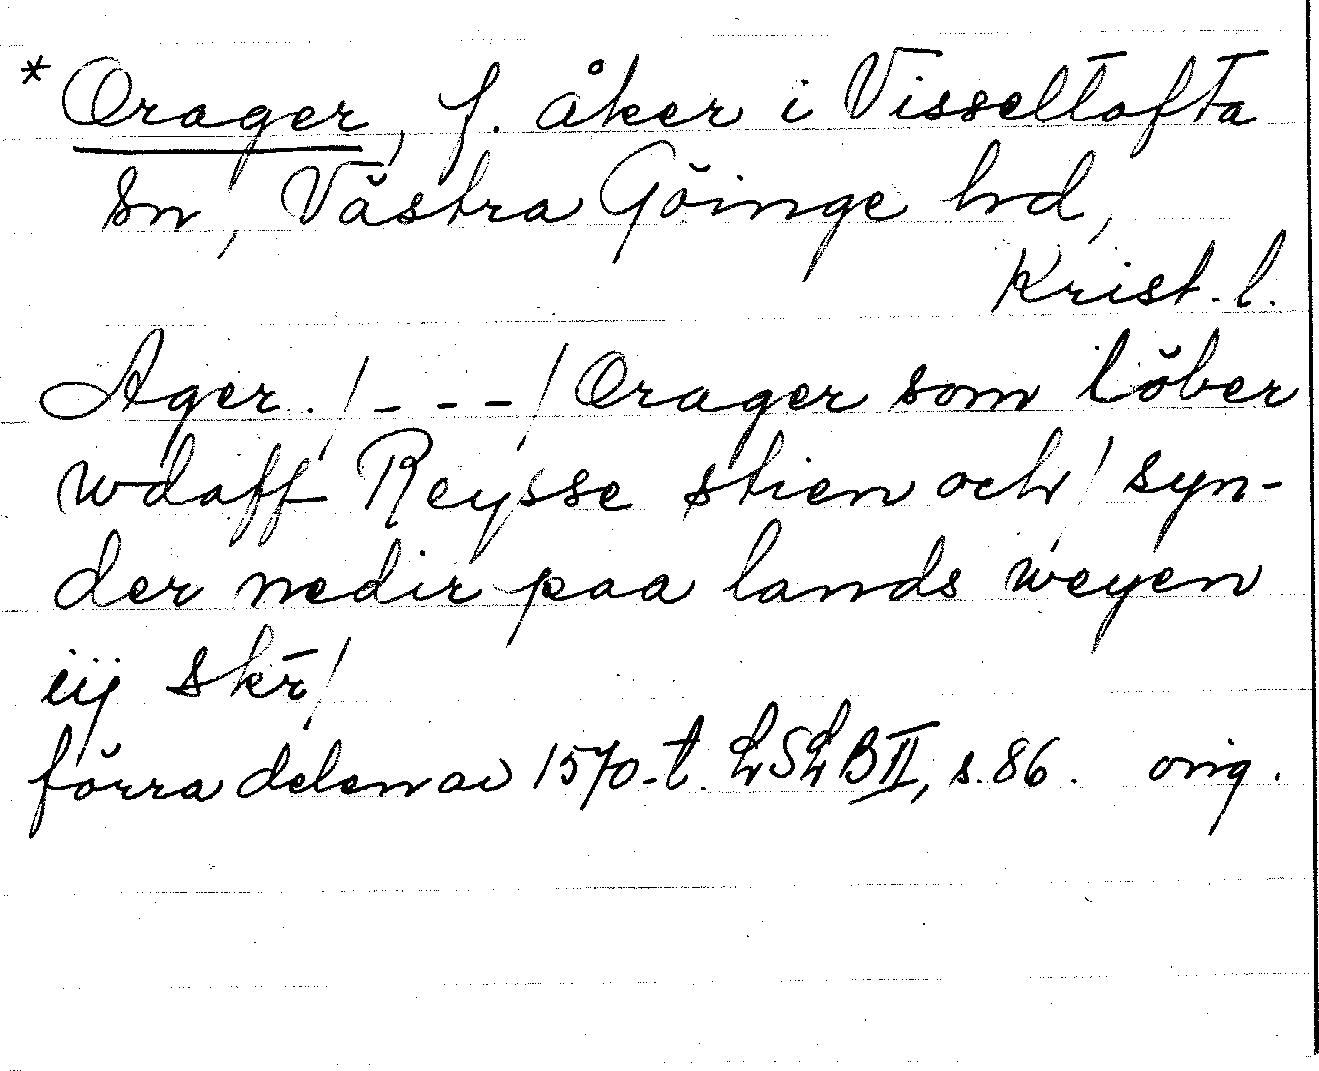 *Orager, f. åker i Visseltofta
sn, Västra Göinge hd,
Krist. l.
Ager. / - - - / Orager som löber
wdaff Reysse stien och / syn-
der nedir paa lands weyen
iij skr̄ /
förra delen av 1570-t. LSLB II, s. 86. orig.